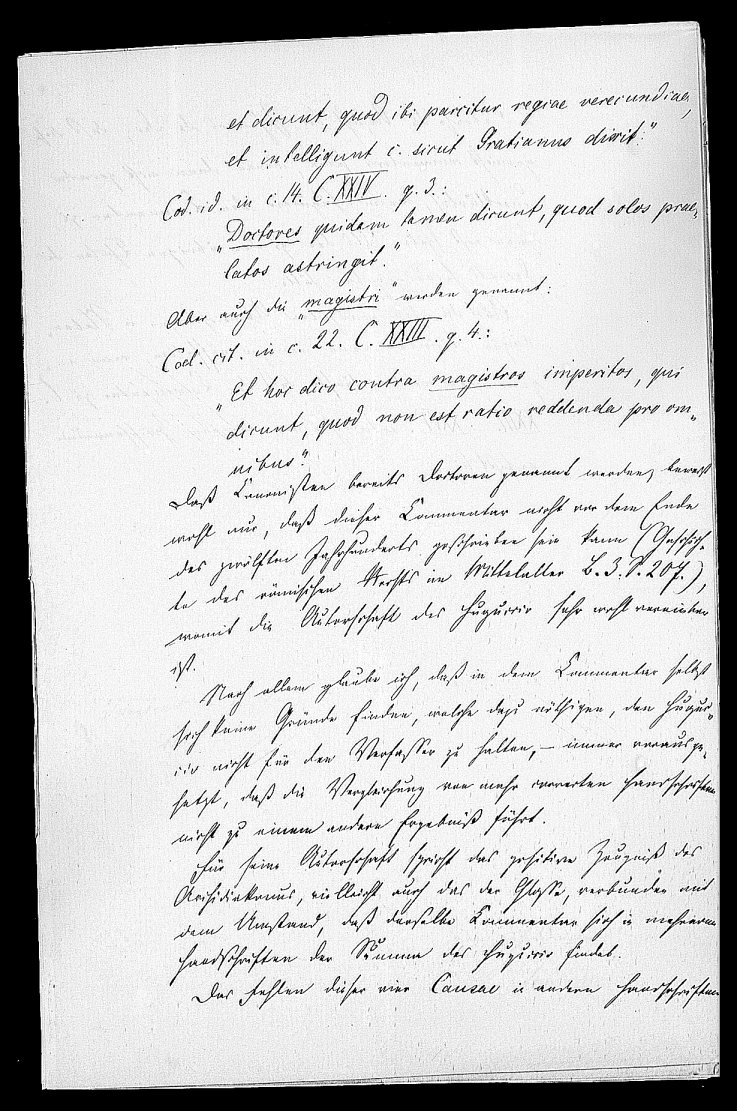 et dicunt, quod ibi parcitur regiae verecundiae,
et intelligunt c. sicut Gratianus dixit."
Cod. id. in c. 14. C. XXIV. q. 3.:
"Doctores quidam tamen dicunt, quod solos prae„
latos astringit."
Aber auch die "magistri" werden genannt:
Cod. cit. in c. 22. C. XXIII. q. 4.:
"Et hoc dico contra magistros imperitos, qui
dicunt, quod non est ratio reddenda pro om„
nibus."
Daß Canonisten bereits Doctoren genannt werden, beweist
wohl nur, daß dieser Commentar nicht vor dem Ende
des zwölften Jahrhunderts geschrieben sein kann (Geschich„
te des römischen Rechts im Mittelalter B. 3. S. 207.),
womit die Autorschaft des Huguccio sehr wohl vereinbar
ist.
Nach allem glaube ich, daß in dem Commentar selbst
sich keine Gründe finden, welche dazu nöthigen, den Huguc„
cio nicht für den Verfasser zu halten, – immer vorausge„
setzt, daß die Vergleichung von mehr correcten Handschriften
nicht zu einem andern Ergebniß führt.
Für seine Autorschaft spricht das positive Zeugniß des
Archidiakonus, vielleicht auch das der Glosse, verbunden mit
dem Umstand, daß derselbe Commentar sich in mehreren
Handschriften der Summa des Huguccio findet.
Das Fehlen dieser vier Causae in andern Handschriften